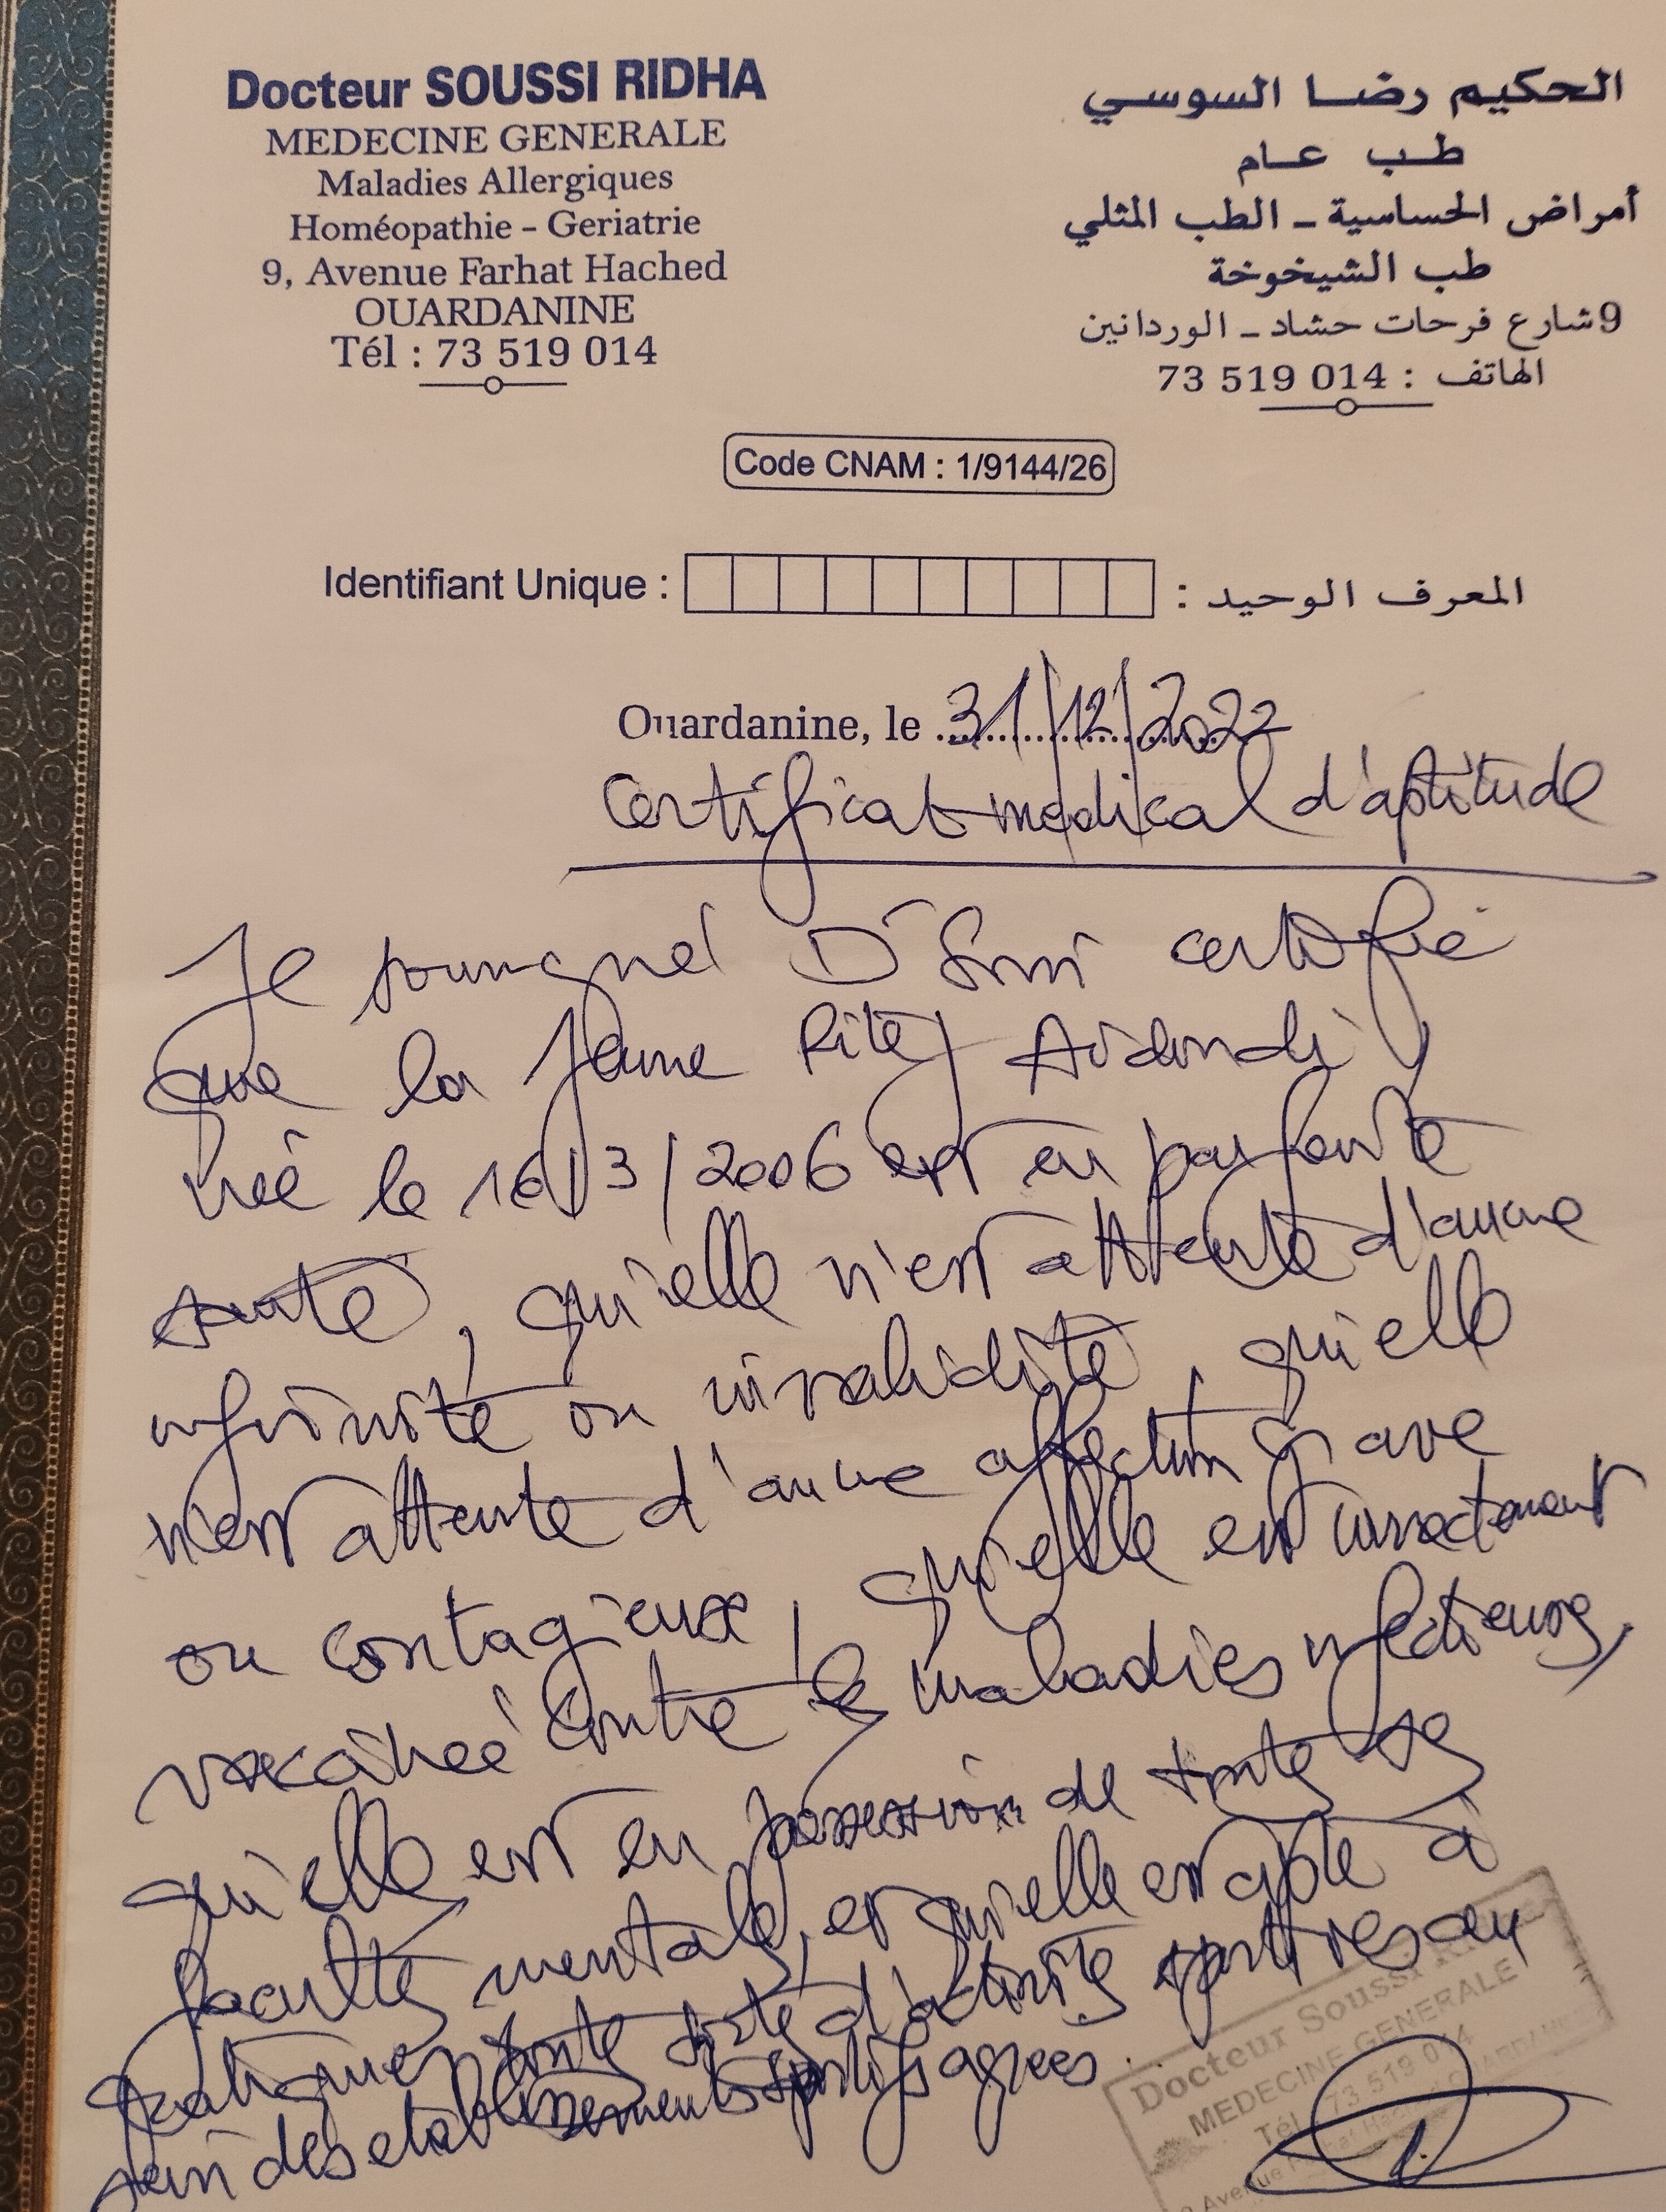 Docteur SOUSSI RIDHA
MEDECINE GENERALE
Maladies Allergiques
Homéopathie - Geriatrie
9, Avenue Farhat Hached
OUARDANINE
Tél : 73 519 014
الحكيم رضا السوسي
طب عام
أمراض الحساسية - الطب المثلي
طب الشيخوخة
9 شارع فرحات حشاد - الوردانين
الهاتف : 73 519 014
Code CNAM : 1/9144/26
Identifiant Unique : المعرف الوحيد :
Ouardanine, le 31/12/2022
Certificat médical d'aptitude
Je soussigné Dr Soussi certifie
que la jeune
née le 16/3/2006 est en parfaite
santé, qu'elle n'est atteinte d'aucune
infirmité ou invalidité, qu'elle
n'est atteinte d'aucune affection grave
ou contagieuse, qu'elle est correctement
vaccinée contre les maladies infectieuses,
qu'elle est en possession de toutes ses
facultés mentales, et qu'elle est apte à
pratiquer toute sorte d'activités sportives au
sein des etablissements sportifs agrees.
Docteur Soussi
MEDECINE GENERALE
Tél : 73 519 014
9 Avenue